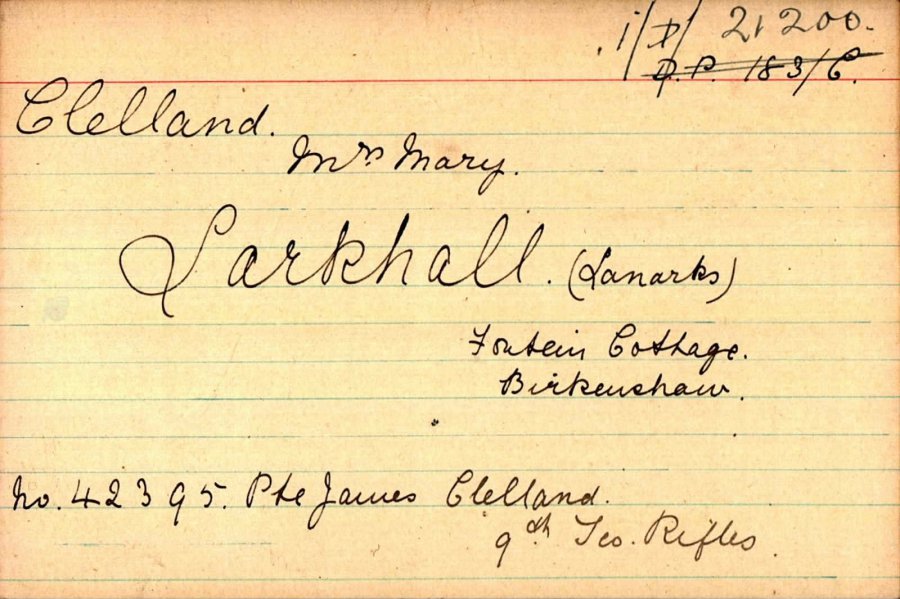 i/D/ 21200.
D.P. 183/C.
Clelland.
Mrs Mary.
Larkhall. (Lanarks)
Foutein Cottage.
Birkenshaw.
No. 42395. Pte James Clelland.
9th Sco. Rifles.